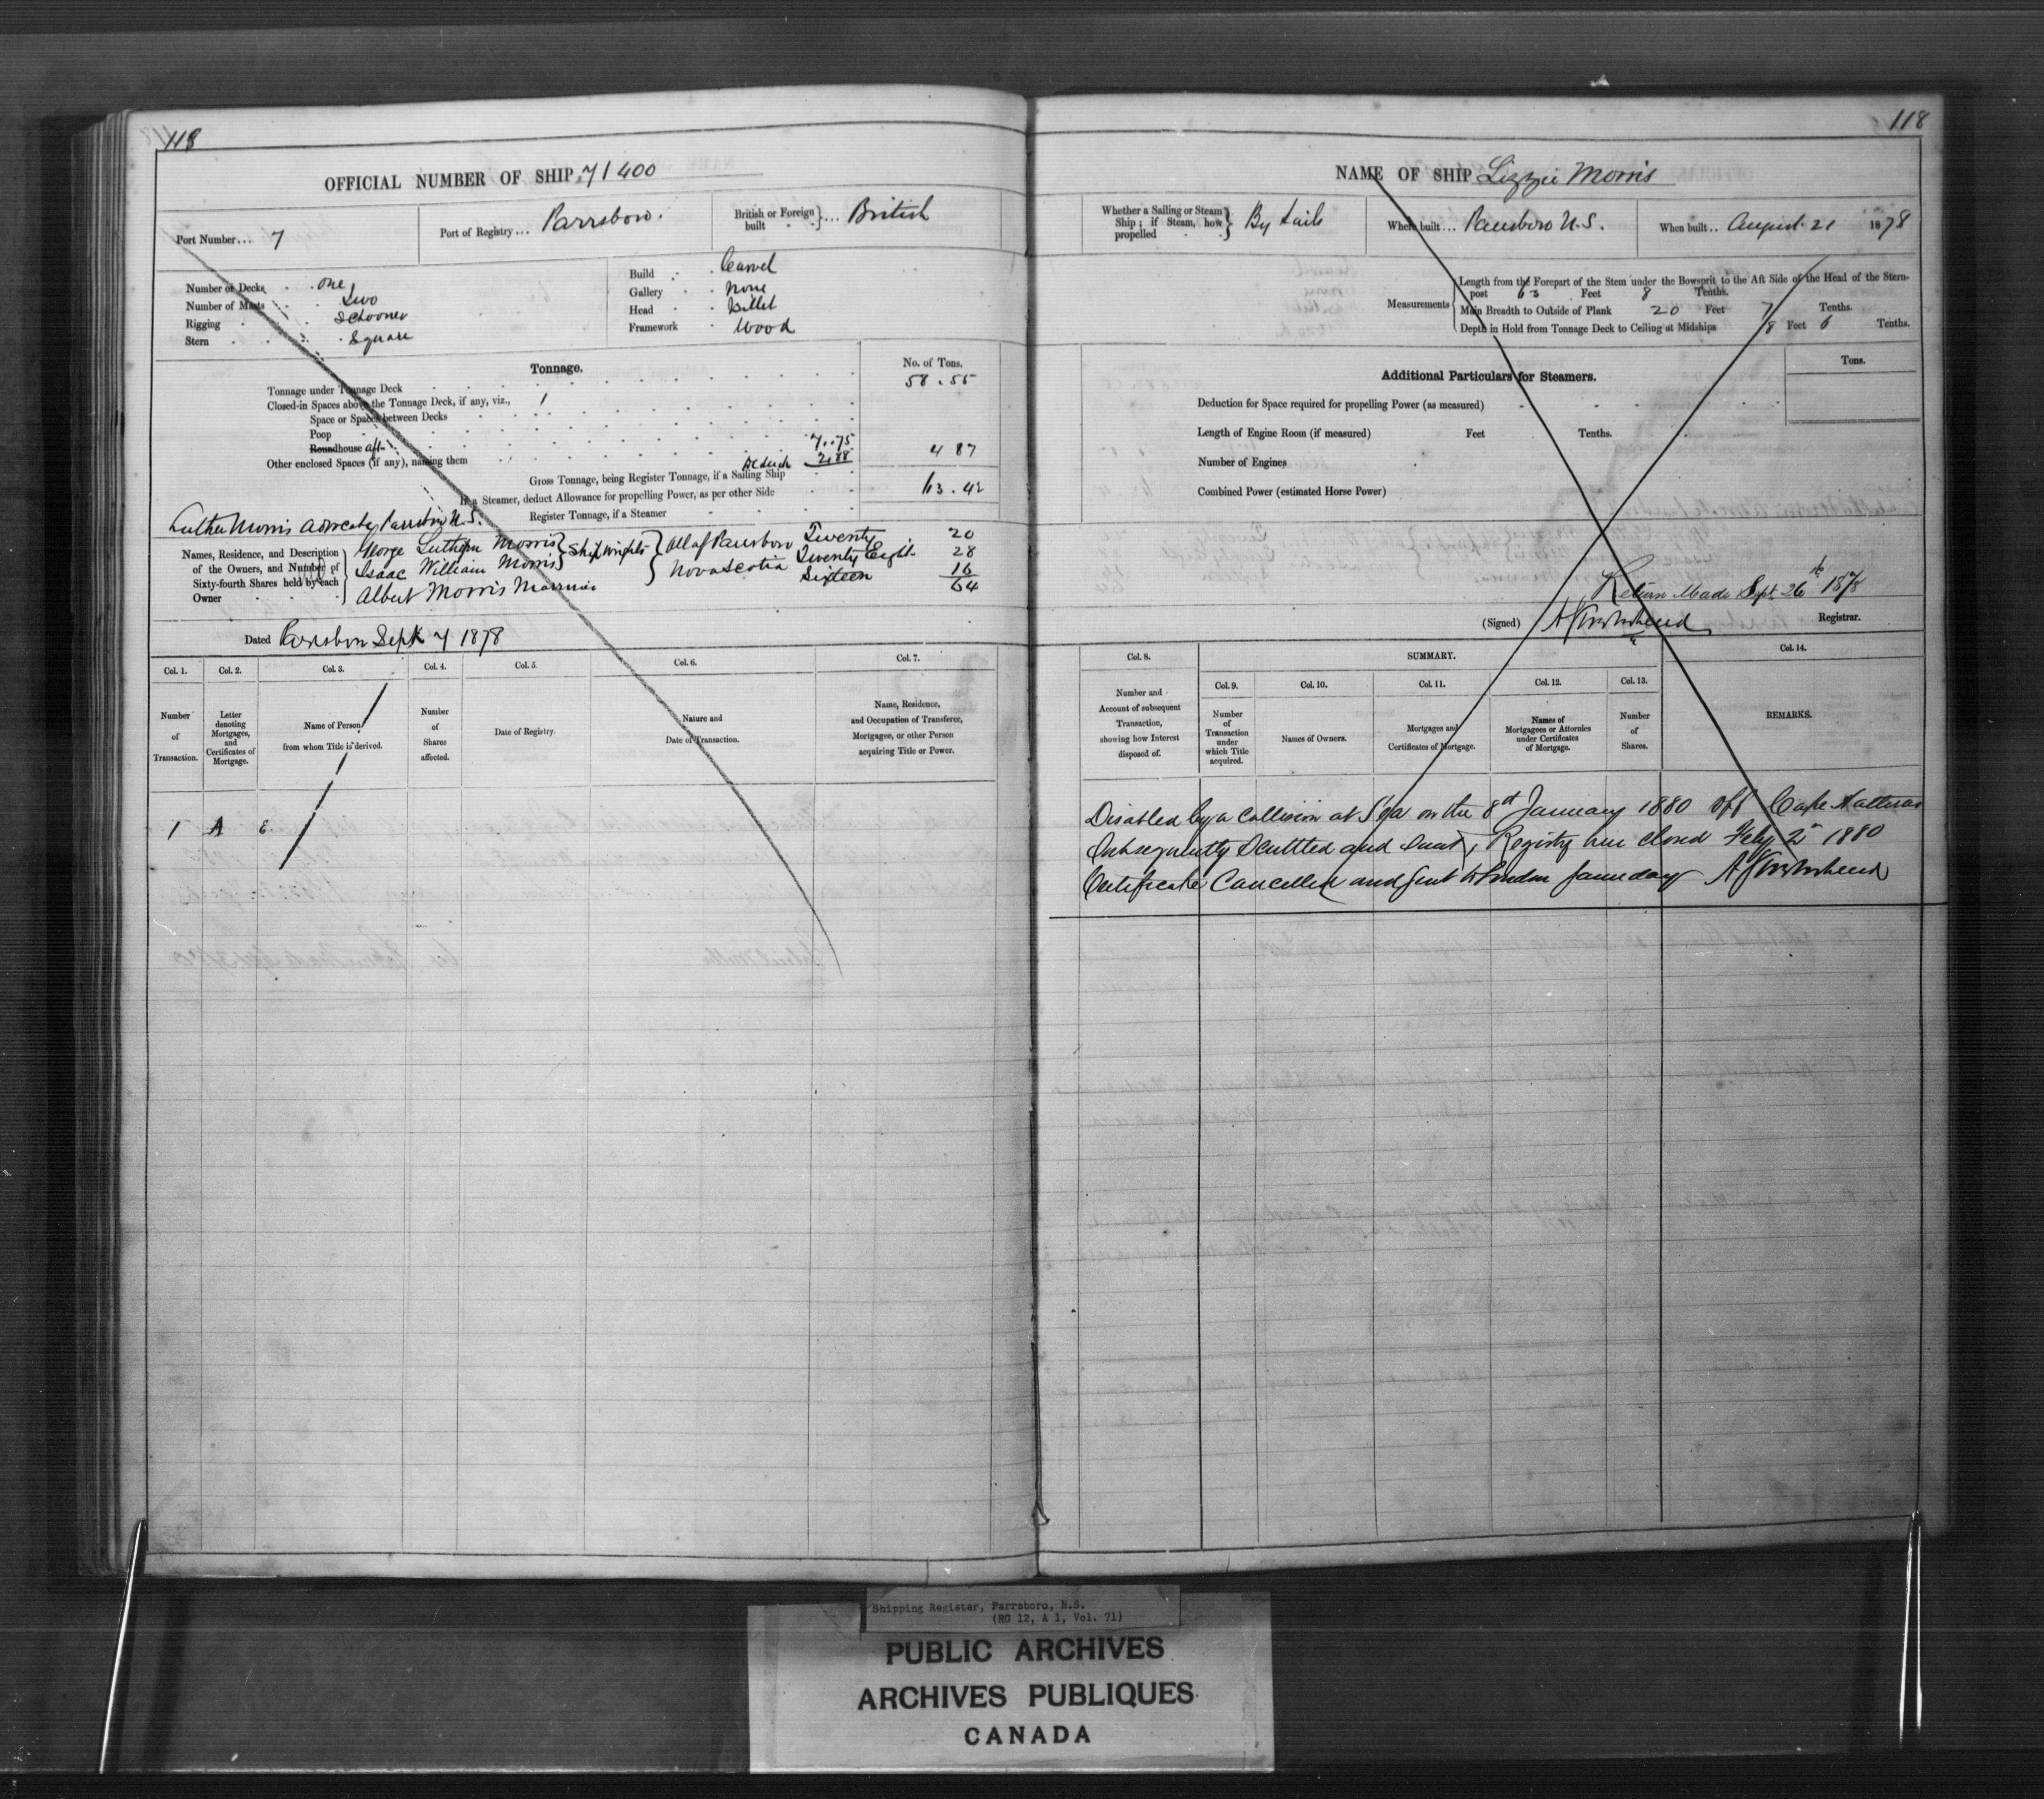 118
OFFICIAL NUMBER OF SHIP 71400
Port Number... 7
Port of Registry... Parrsboro.
British or Foreign built } ... British
Number of Decks . . One
Number of Masts . . Two
Rigging . . Schooner
Stern . . Square
Build . . Carvel
Gallery . . None
Head . . Billet
Framework . Wood
Tonnage.
No. of Tons.
Tonnage under Tonnage Deck 58.55
Closed-in Spaces above the Tonnage Deck, if any, viz., 1
Space or Spaces between Decks
Poop
Roundhouse aft 7.75
Other enclosed Spaces (if any), naming them Deduct 2.88 4 87
Gross Tonnage, being Register Tonnage, if a Sailing Ship 63.42
If a Steamer, deduct Allowance for propelling Power, as per other Side
Register Tonnage, if a Steamer
Luther Morris Parrsboro N.S.
Names, Residence, and Description of the Owners, and Number of Sixty-fourth Shares held by each Owner
George Luther Morris } Shipwrights } All of Parrsboro Twenty . 20
Isaac William Morris } Nova Scotia Twenty Eight 28
Albert Morris Marriner Sixteen 16
64
Dated Parrsboro Sept 7 1878
Col. 1. Col. 2. Col. 3. Col. 4. Col. 5. Col. 6. Col. 7.
Number of Transaction.
Letter denoting Mortgages, and Certificates of Mortgage.
Name of Person from whom Title is derived.
Number of Shares affected.
Date of Registry.
Nature and Date of Transaction.
Name, Residence, and Occupation of Transferee, Mortgagee, or other Person acquiring Title or Power.
1 A E.
118
NAME OF SHIP Lizzie Morris
Whether a Sailing or Steam Ship; if Steam, how propelled } By Sails
Where built... Parrsboro N.S.
When built.. August 21 1878
Measurements
Length from the Forepart of the Stem under the Bowsprit to the Aft Side of the Head of the Stern-
post 63 Feet 8 Tenths.
Main Breadth to Outside of Plank 20 Feet 7 Tenths.
Depth in Hold from Tonnage Deck to Ceiling at Midships 8 Feet 6 Tenths.
Additional Particulars for Steamers.
Tons.
Deduction for Space required for propelling Power (as measured)
Length of Engine Room (if measured) Feet Tenths.
Number of Engines
Combined Power (estimated Horse Power)
Return Made Sept. 26th 1878
(Signed) Registrar.
Col. 8. SUMMARY. Col. 14.
Col. 9. Col. 10. Col. 11. Col. 12. Col. 13.
Number and Account of subsequent Transaction, showing how Interest disposed of.
Number of Transaction under which Title acquired.
Names of Owners.
Mortgages and Certificates of Mortgage.
Names of Mortgagees or Attornies under Certificates of Mortgage.
Number of Shares.
REMARKS.
Disabled by a Collision at Sea on the 8th January 1880 off Cape Hatteras
Subsequently Scuttled and Sunk, Registry here closed Feby 2nd 1880
Certificate Cancelled and sent to London same day
Shipping Register, Parrsboro, N.S.
(RG 12, A 1, Vol. 71)
PUBLIC ARCHIVES
ARCHIVES PUBLIQUES
CANADA